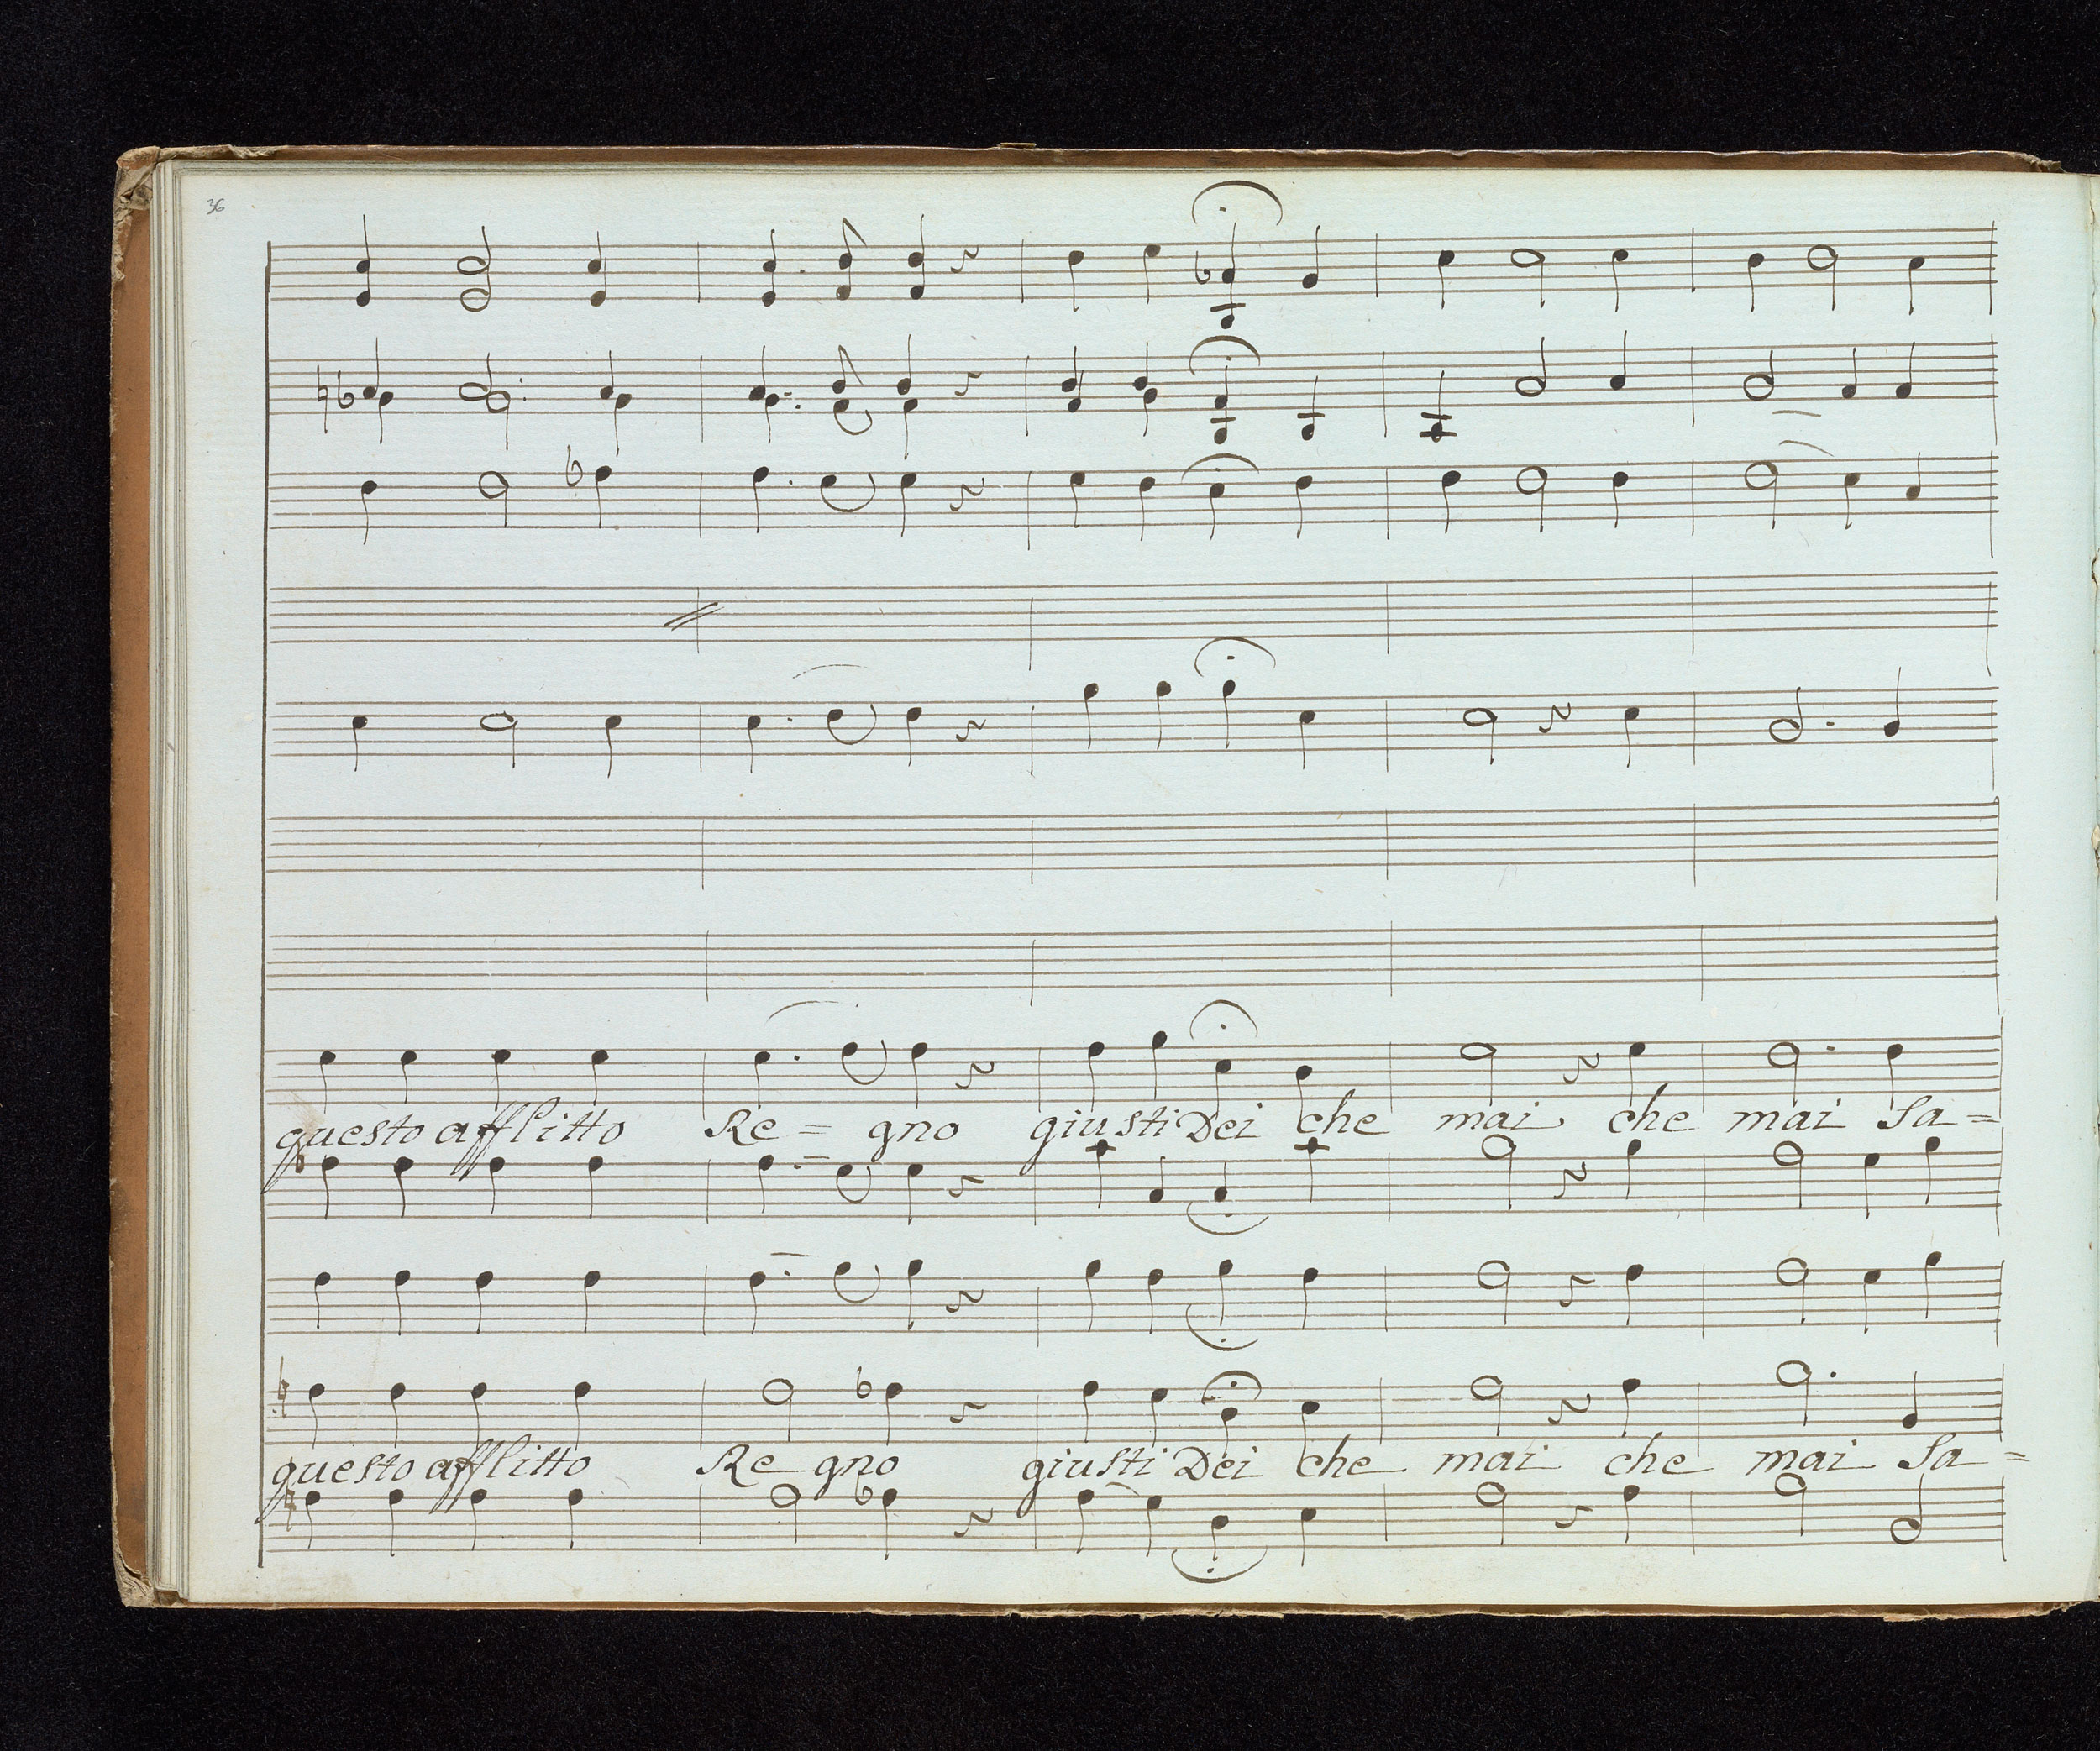 36
questo afflitto Re = gno giusti Dei che mai che mai Sa =
questo afflitto Re gno giusti Dei che mai che mai Sa =